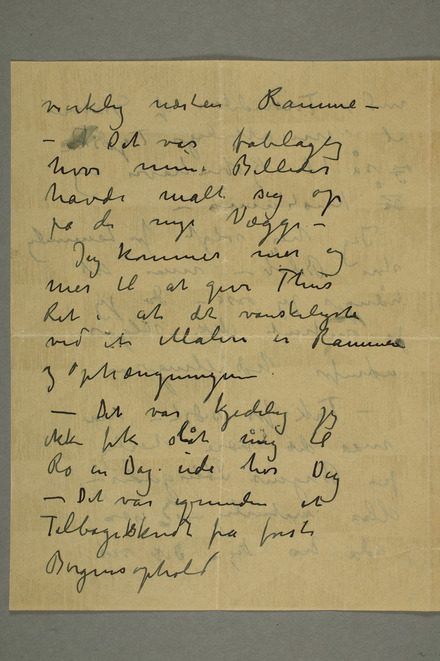 virkelig næsten Ramme –
– Det var fabelagtig
hvor mine Billeder
havde malt sig op
på de nye Vægge –
Jeg kommer mer og
mer til at give Thiis
Ret i at det vanskeligste
ved et Maleri er Rammen
og Ophængningen.
– Det var kjedelig jeg
ikke fik slåt mig til
Ro en Dag ude hos Dig
– Det var igrunden et
Tilbageskridt fra første
Bergensophold